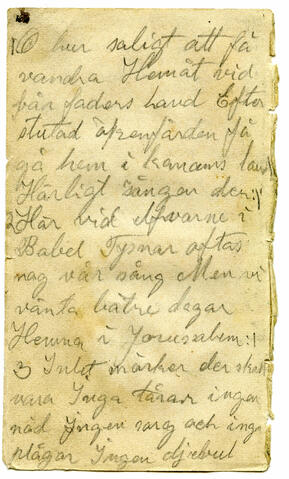 1 O hur saligt att få
vandra Hemåt vid
vår faders hand Efter
slutad ökenfärden få
gå hem i kanaans land
Härligt sånger der:||
2 Här vid elfvarne i
Babel Tysnar oftas
nog vår sång Men vi
vänta bätre dagar
Hemma i Jorusalem:|
3 Intet mörker der skall
vara Inga tårar ingen
nöd Ingen sorg och inga
plågar Ingen djebul